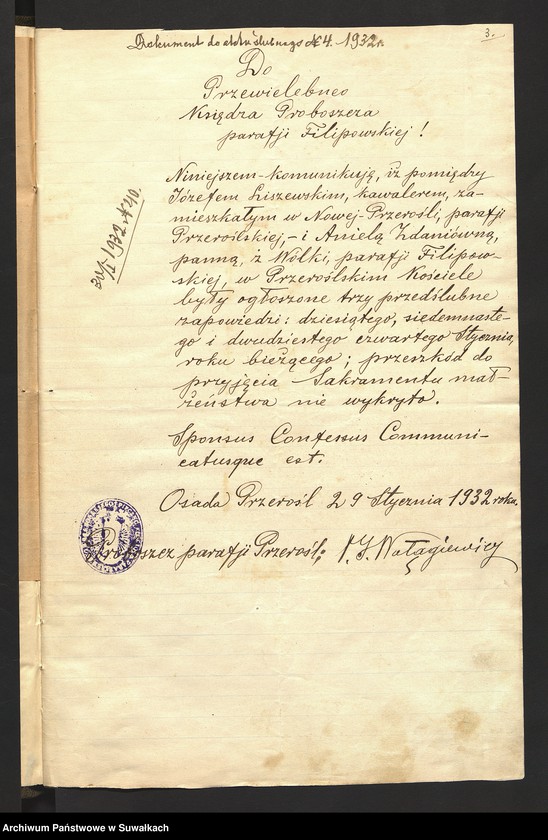 3.
Dokument do aktu ślubnego № 4. 1932 r.
Do
Przewielebneo
Księdza Proboszcza
parafji Filipowskiej!
Niniejszem komunikują, iż pomiędzy
Józefem Liszewskim, kawalerem, za-
mieszkałym w Nowej-Przerośli, parafji
Przeroślskiej, - i Anielą Zdaniówną,
panną, z Wólki, parafji Filipow-
skiej, w Przeroślskim Kościele
były ogłoszone trzy przedślubne
zapowiedzi: dziesiątego, siedemnaste-
go i dwudziestego czwartego Stycznia,
roku bieżącego; przeszkód do
przyjęcia Sakramentu mał-
żeństwa nie wykryto.
Sponsus Confessus Communi-
catusque est.
Osada Przerośl 29 Stycznia 1932 roku.
Proboszcz parafji Przerośl:
1932. № 40.
Archiwum Państwowe w Suwałkach